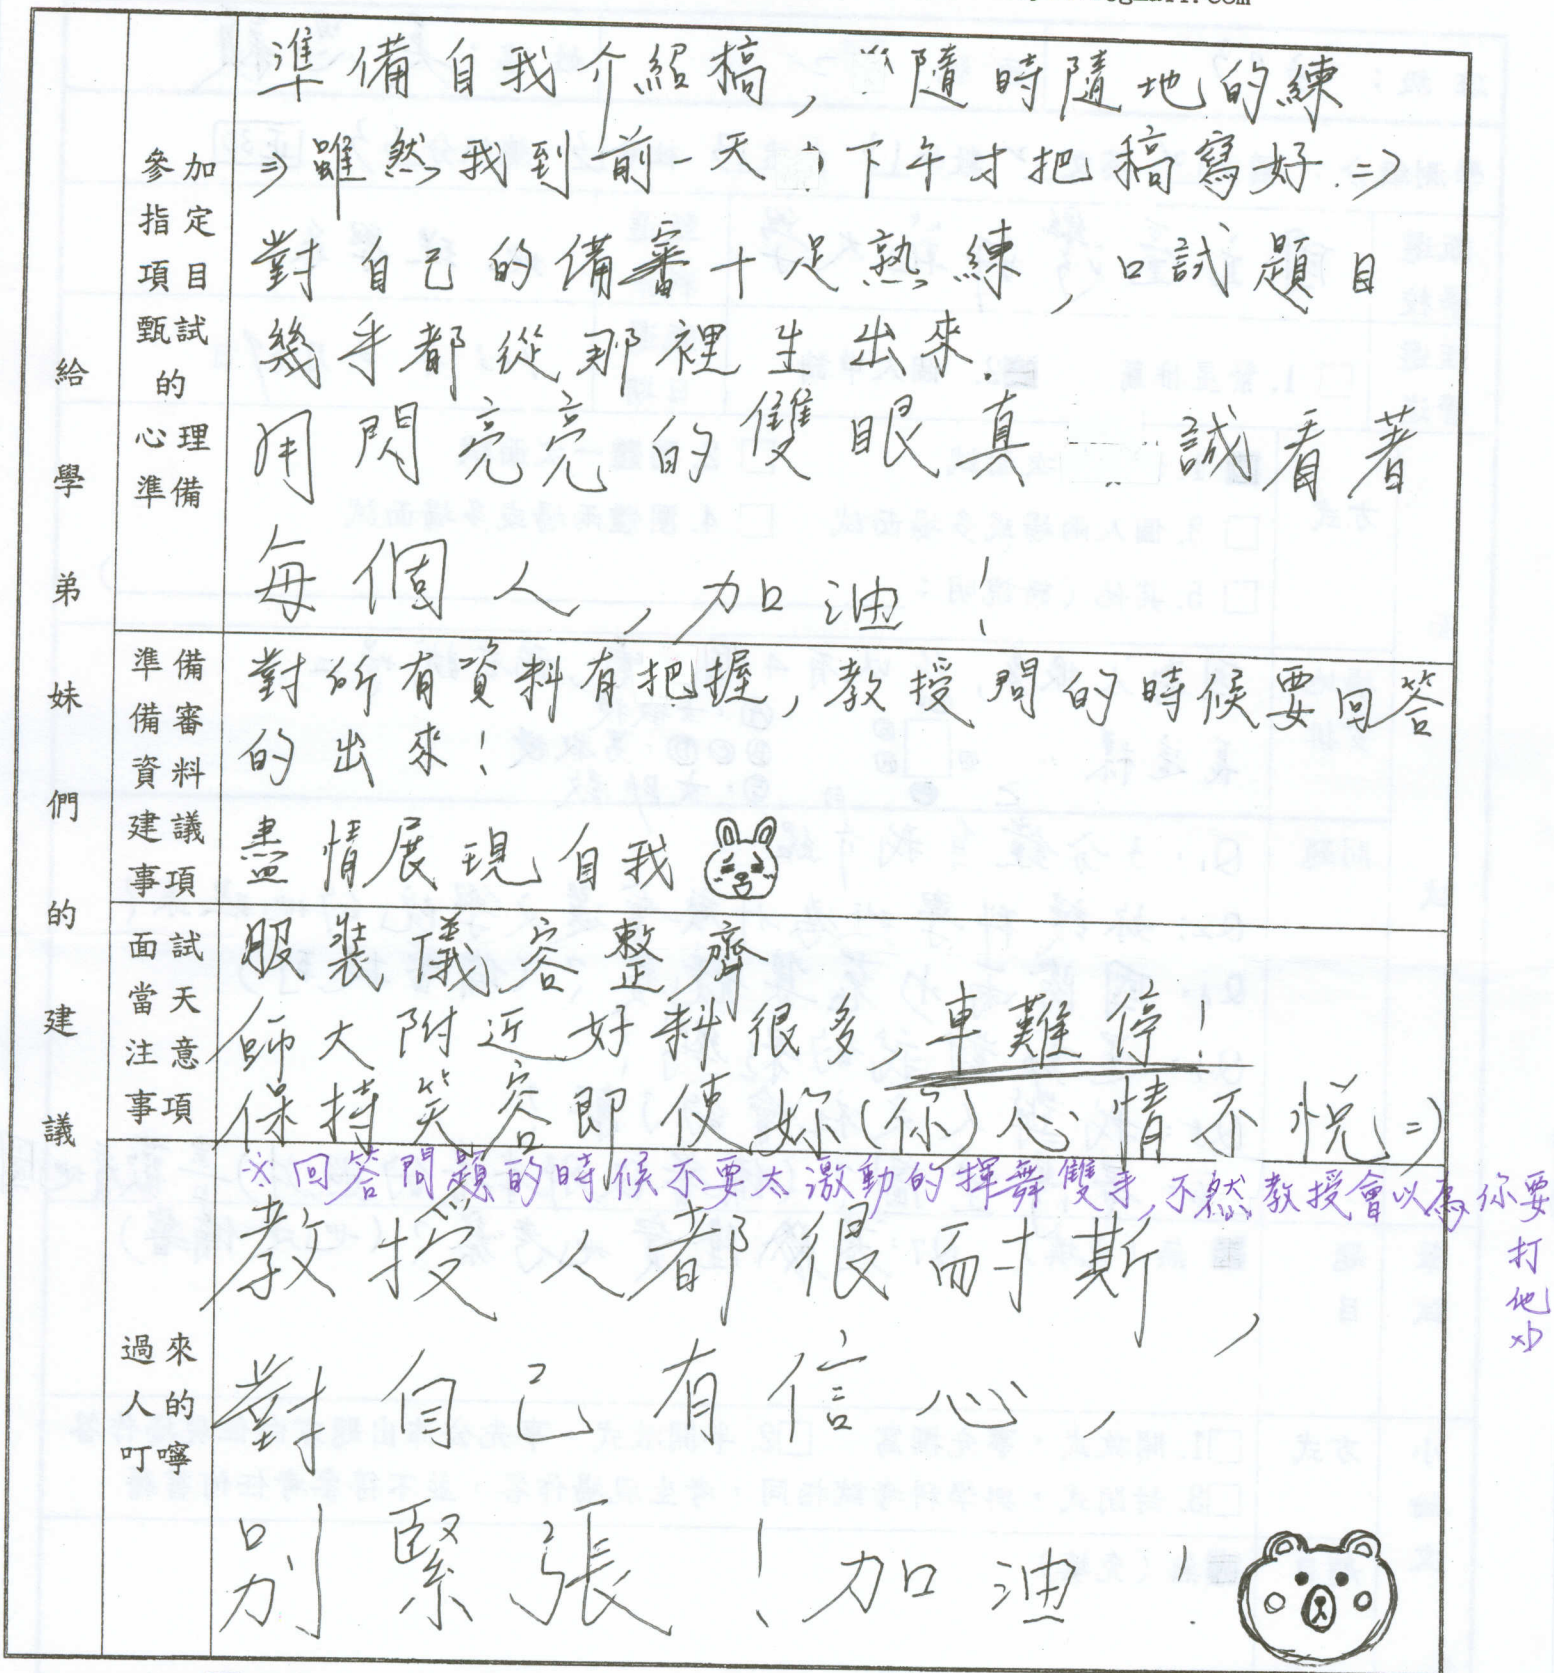 給學弟妹們的建議
參加
指定
項目
甄試
的
心理
準備
準備自我介紹稿，隨時隨地的練
=>雖然我到前一天下午才把稿寫好.=>
對自己的備審十足熟練，口試題目
幾乎都從那裡生出來.
用閃亮亮的雙眼真誠看著
每個人，加油！
準備
備審
資料
建議
事項
對所有資料有把握，教授問的時候要回答
的出來！
盡情展現自我
面試
當天
注意
事項
服裝儀容整齊
師大附近好料很多，車難停！
保持笑容即使妳(你)心情不悅=)
※回答問題的時候不要太激動的揮舞雙手，不然教授會以為你要
打他XD
過來
人的
叮嚀
教授人都很耐斯，
對自己有信心，
別緊張！加油！